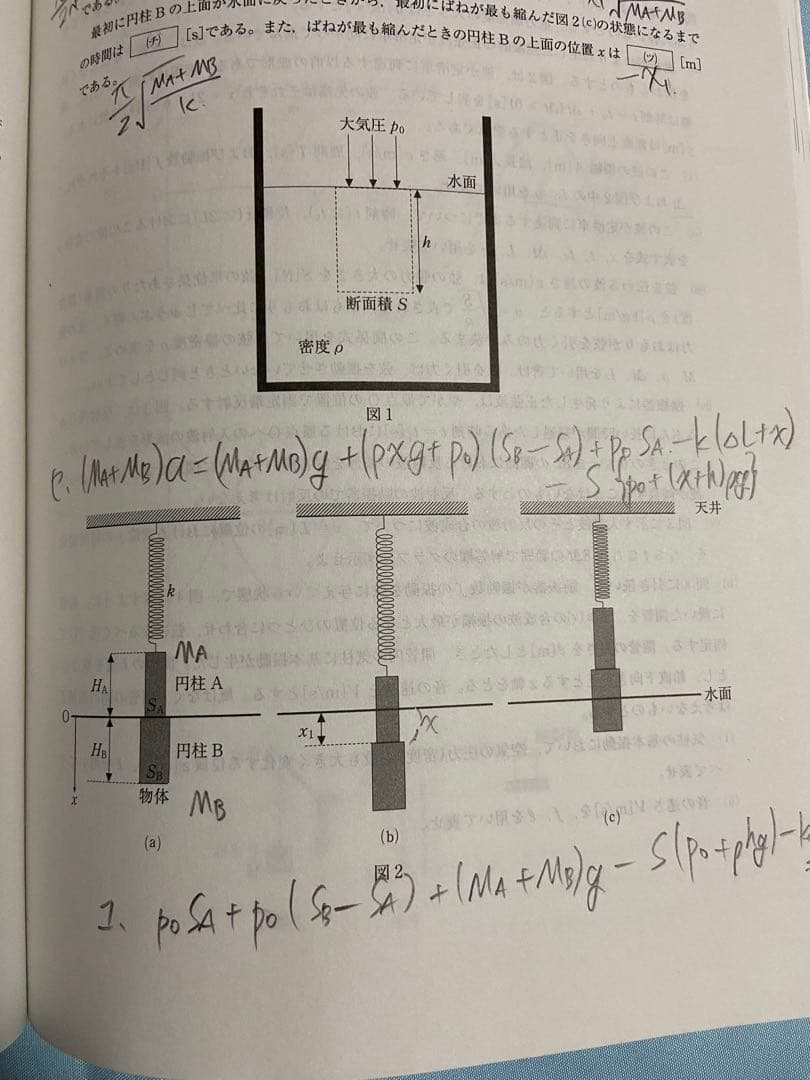 √MA+MB
最初に円柱Bの上面が水面に戻ったときから,最初にばねが最も縮んだ図2(c)の状態になるまで
の時間は (チ) [s]である。また,ばねが最も縮んだときの円柱Bの上面の位置xは (ツ) [m]
である。
π/2 √MA+MB/k.
-x1.
大気圧 p0
水面
h
断面積 S
密度 ρ
図1
(MA+MB)a=(MA+MB)g+(ρxg+p0)(SB-SA)+p0SA-k(ΔL+x)
-S{p0+(x+h)ρg}
天井
k
MA
HA
円柱A
SA
0
水面
x1
x
HB
円柱B
SB
x
物体
MB
(a)
(b)
(c)
図2
p0SA+p0(SB-SA)+(MA+MB)g-S(p0+ρhg)-k